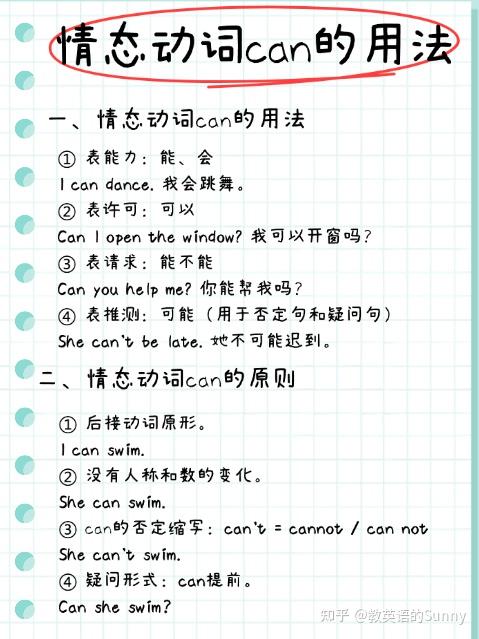 情态动词can的用法
一、情态动词can的用法
① 表能力：能、会
I can dance. 我会跳舞。
② 表许可：可以
Can I open the window? 我可以开窗吗？
③ 表请求：能不能
Can you help me? 你能帮我吗？
④ 表推测：可能（用于否定句和疑问句）
She can't be late. 她不可能迟到。
二、情态动词can的原则
① 后接动词原形。
I can swim.
② 没有人称和数的变化。
She can swim.
③ can的否定缩写：can't = cannot / can not
She can't swim.
④ 疑问形式：can提前。
Can she swim?
知乎 @教英语的Sunny